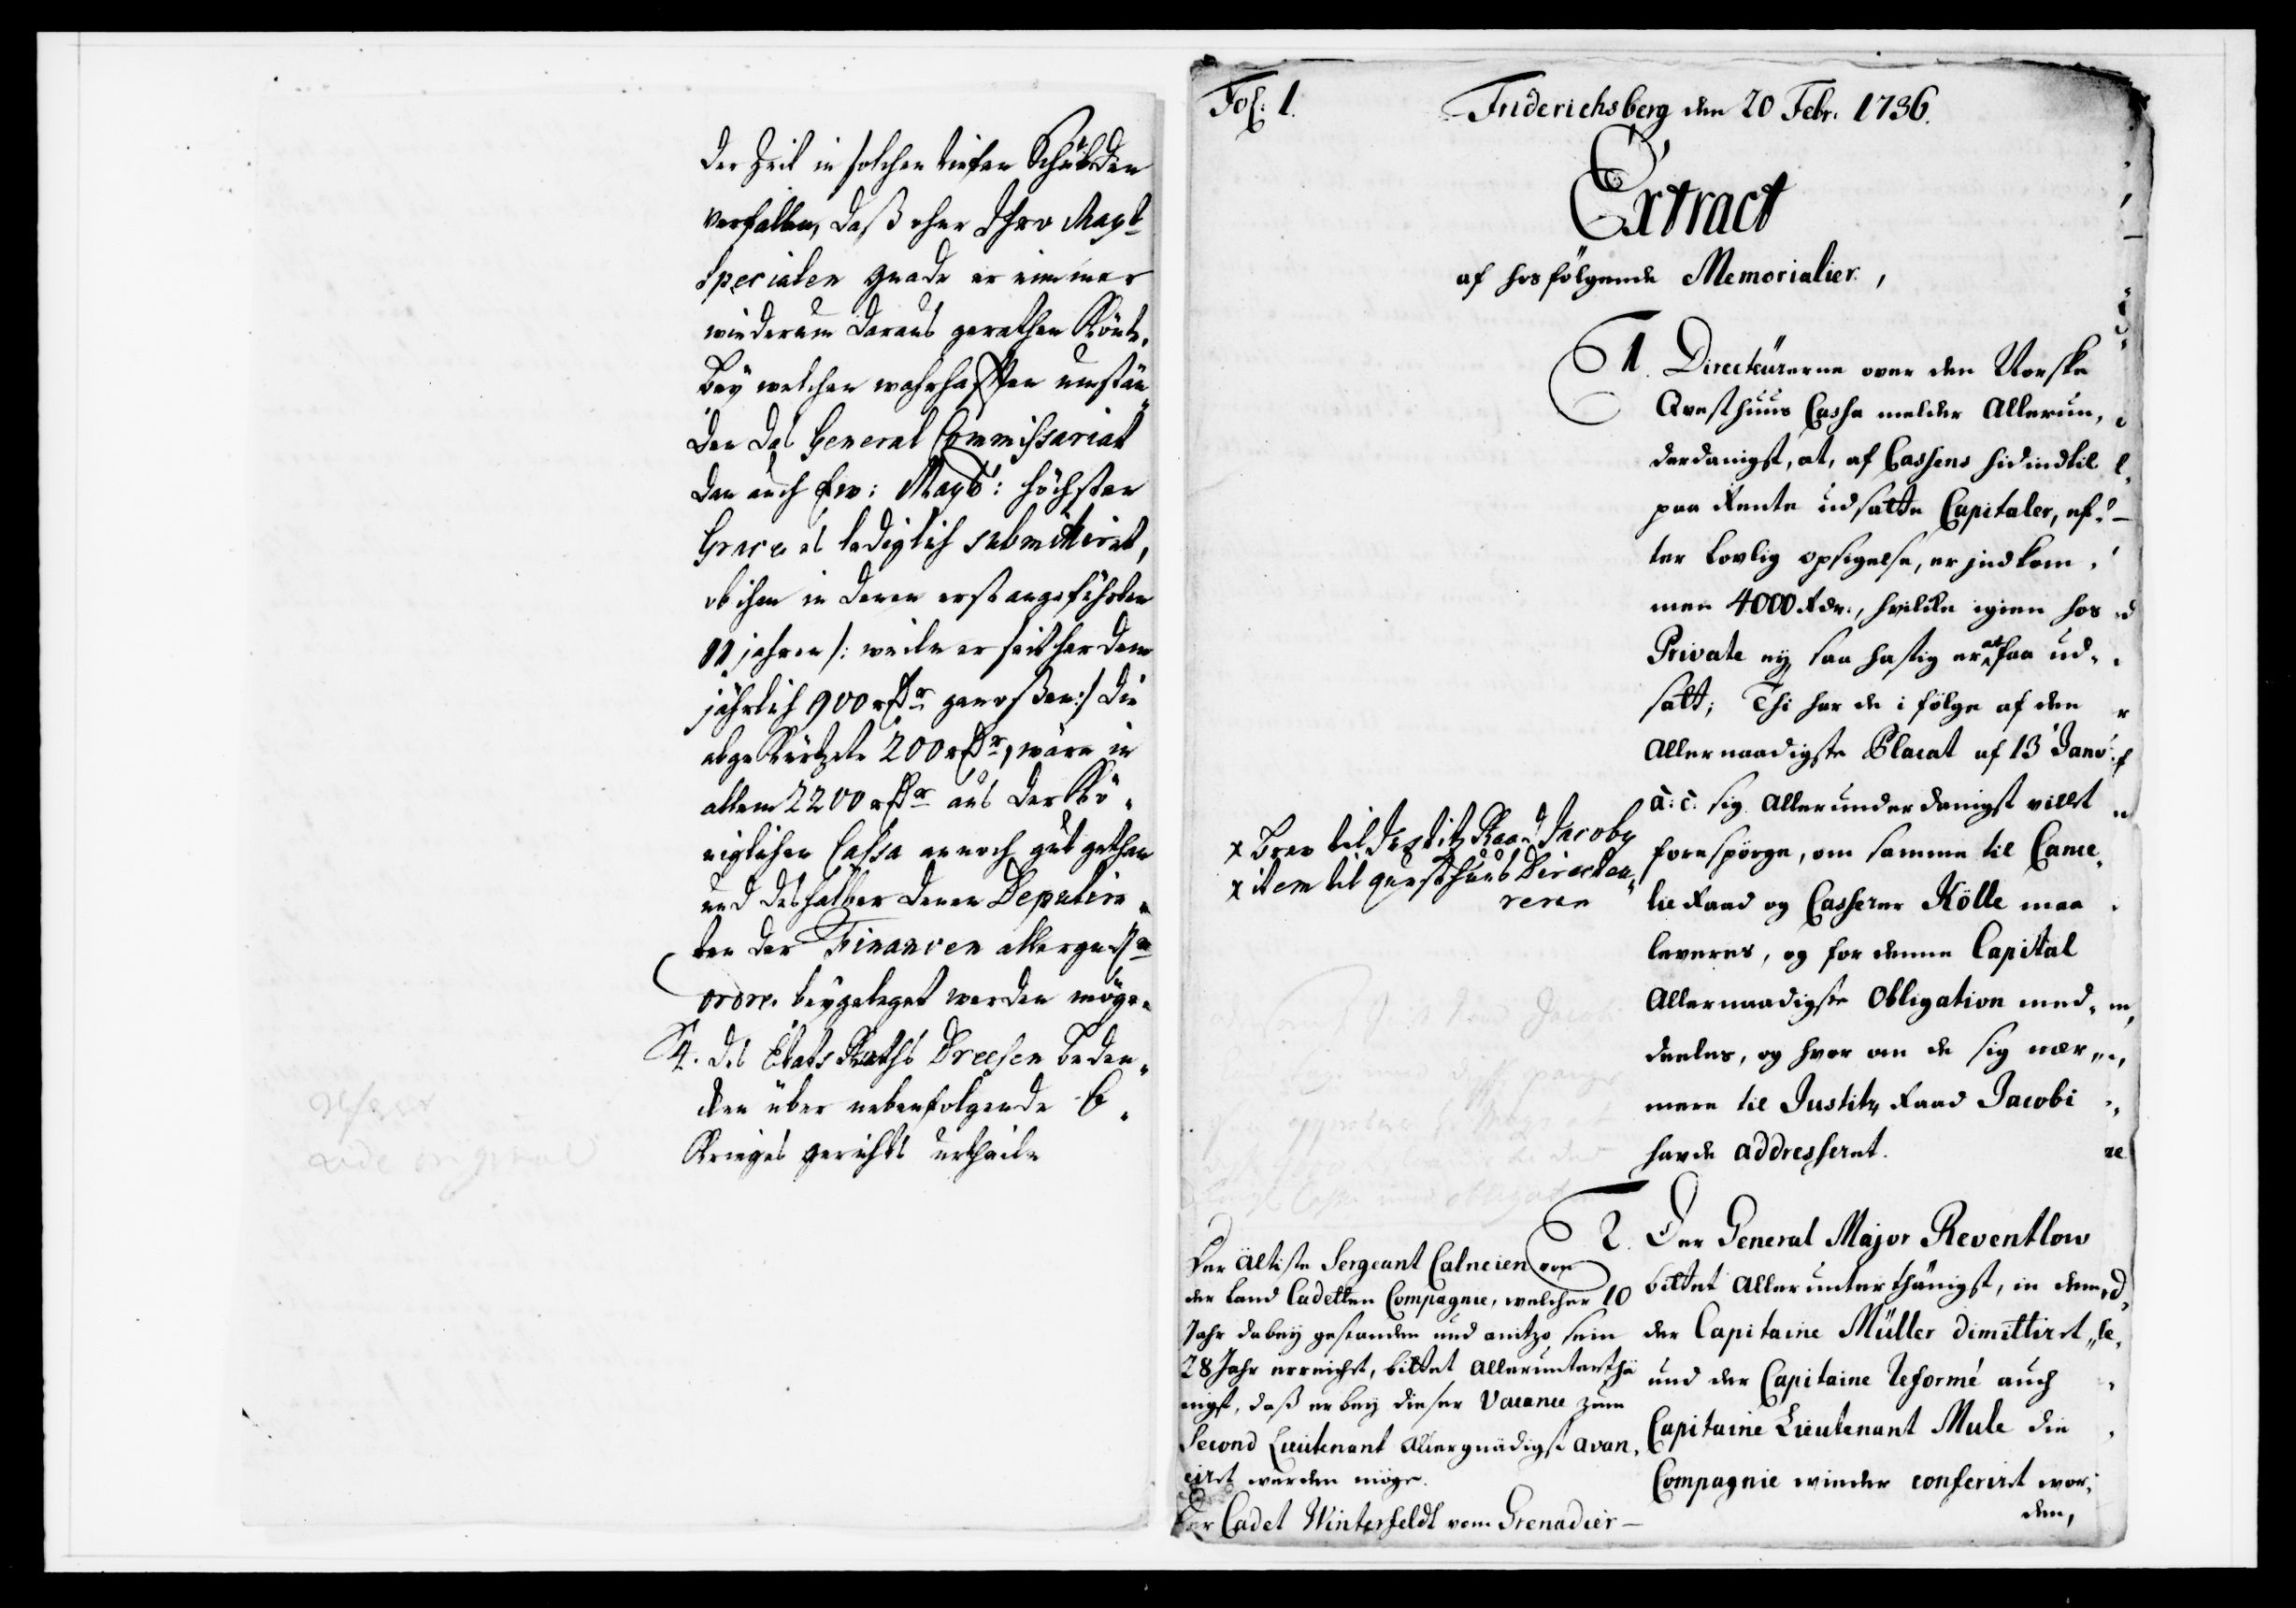 der Zeit in solchen tiefen Schulden
verfallen, daß ohne Ihro Mayt
Specialen gnade er nimmer
wiederum daraus gerathen könte,
bey welchen wahrhafften umstän„
den das General Commissariat
dan auch Ew: Mayt: höchsten
Grace es lediglich submittiret,
ob ihm in denen erst angeführten
11 jahren /: weile er seither dem
jährlich 900 rdr genoßen :/ die
abgekürtzte 200 rdr, wären in
allem 2200 rdr aus der Kö„
niglichen Cassa annoch gut gethan
und deshalber denen Deputir„
ten der Financen allergnste
ordre beygeleget werden möge.
4. des Etats Raths Dreesen beden„
cken über nebenfolgende 6
Kriegs gerichts urtheile
vide original
Fol: 1.
Friderichsberg den 20 Febr: 1736.
Extract
af hosfölgende Memorialier,
1. Directeürerne over den Norske
Qvesthuus Casse melder Allerun„
derdanigst, at, af Cassens hidindtil
paa Rente udsatte Capitaler, ef„
ter Lovlig opsigelse, er indkom„
men 4000 Rdr., hvilke igien hos
Private ey saa hastig er at faa ud„
satt; Thi har de i fölge af den
Allernaadigste Placat af 13 Janv:
a: c: sig Allerunderdanigst villet
forespörge, om samme til Cance„
lie Raad og Casserer Kölle maa
leveres, og for denne Capital
Allernaadigste Obligation med„
deeles, og hvor om de sig nær„
mere til Justitz Raad Jacobi
havde addresseret.
x brev til Justitz Raad Jacoby
x item til qvesthuus Directeu„
rerne
2. Der General Major Reventlow
bittet Allerunterthänigst, in dem
der Capitaine Müller dimittiret
und der Capitaine Reformé auch
Capitaine Lieutenant Mule die
Compagnie wieder conferirt wor„
den,
Der ältiste Sergeant Calneien von
der Land Cadetten Compagnie, welcher 10
Jahr dabey gestanden und anitzo sein
28 Jahr erreichet, bittet Allerunterthä
nigst, daß er bey dieser Vacance zum
Second Lieutenant Allergnädigst avan„
ciret werden möge.
Der Cadet Winterfeldt vom Grenadier—